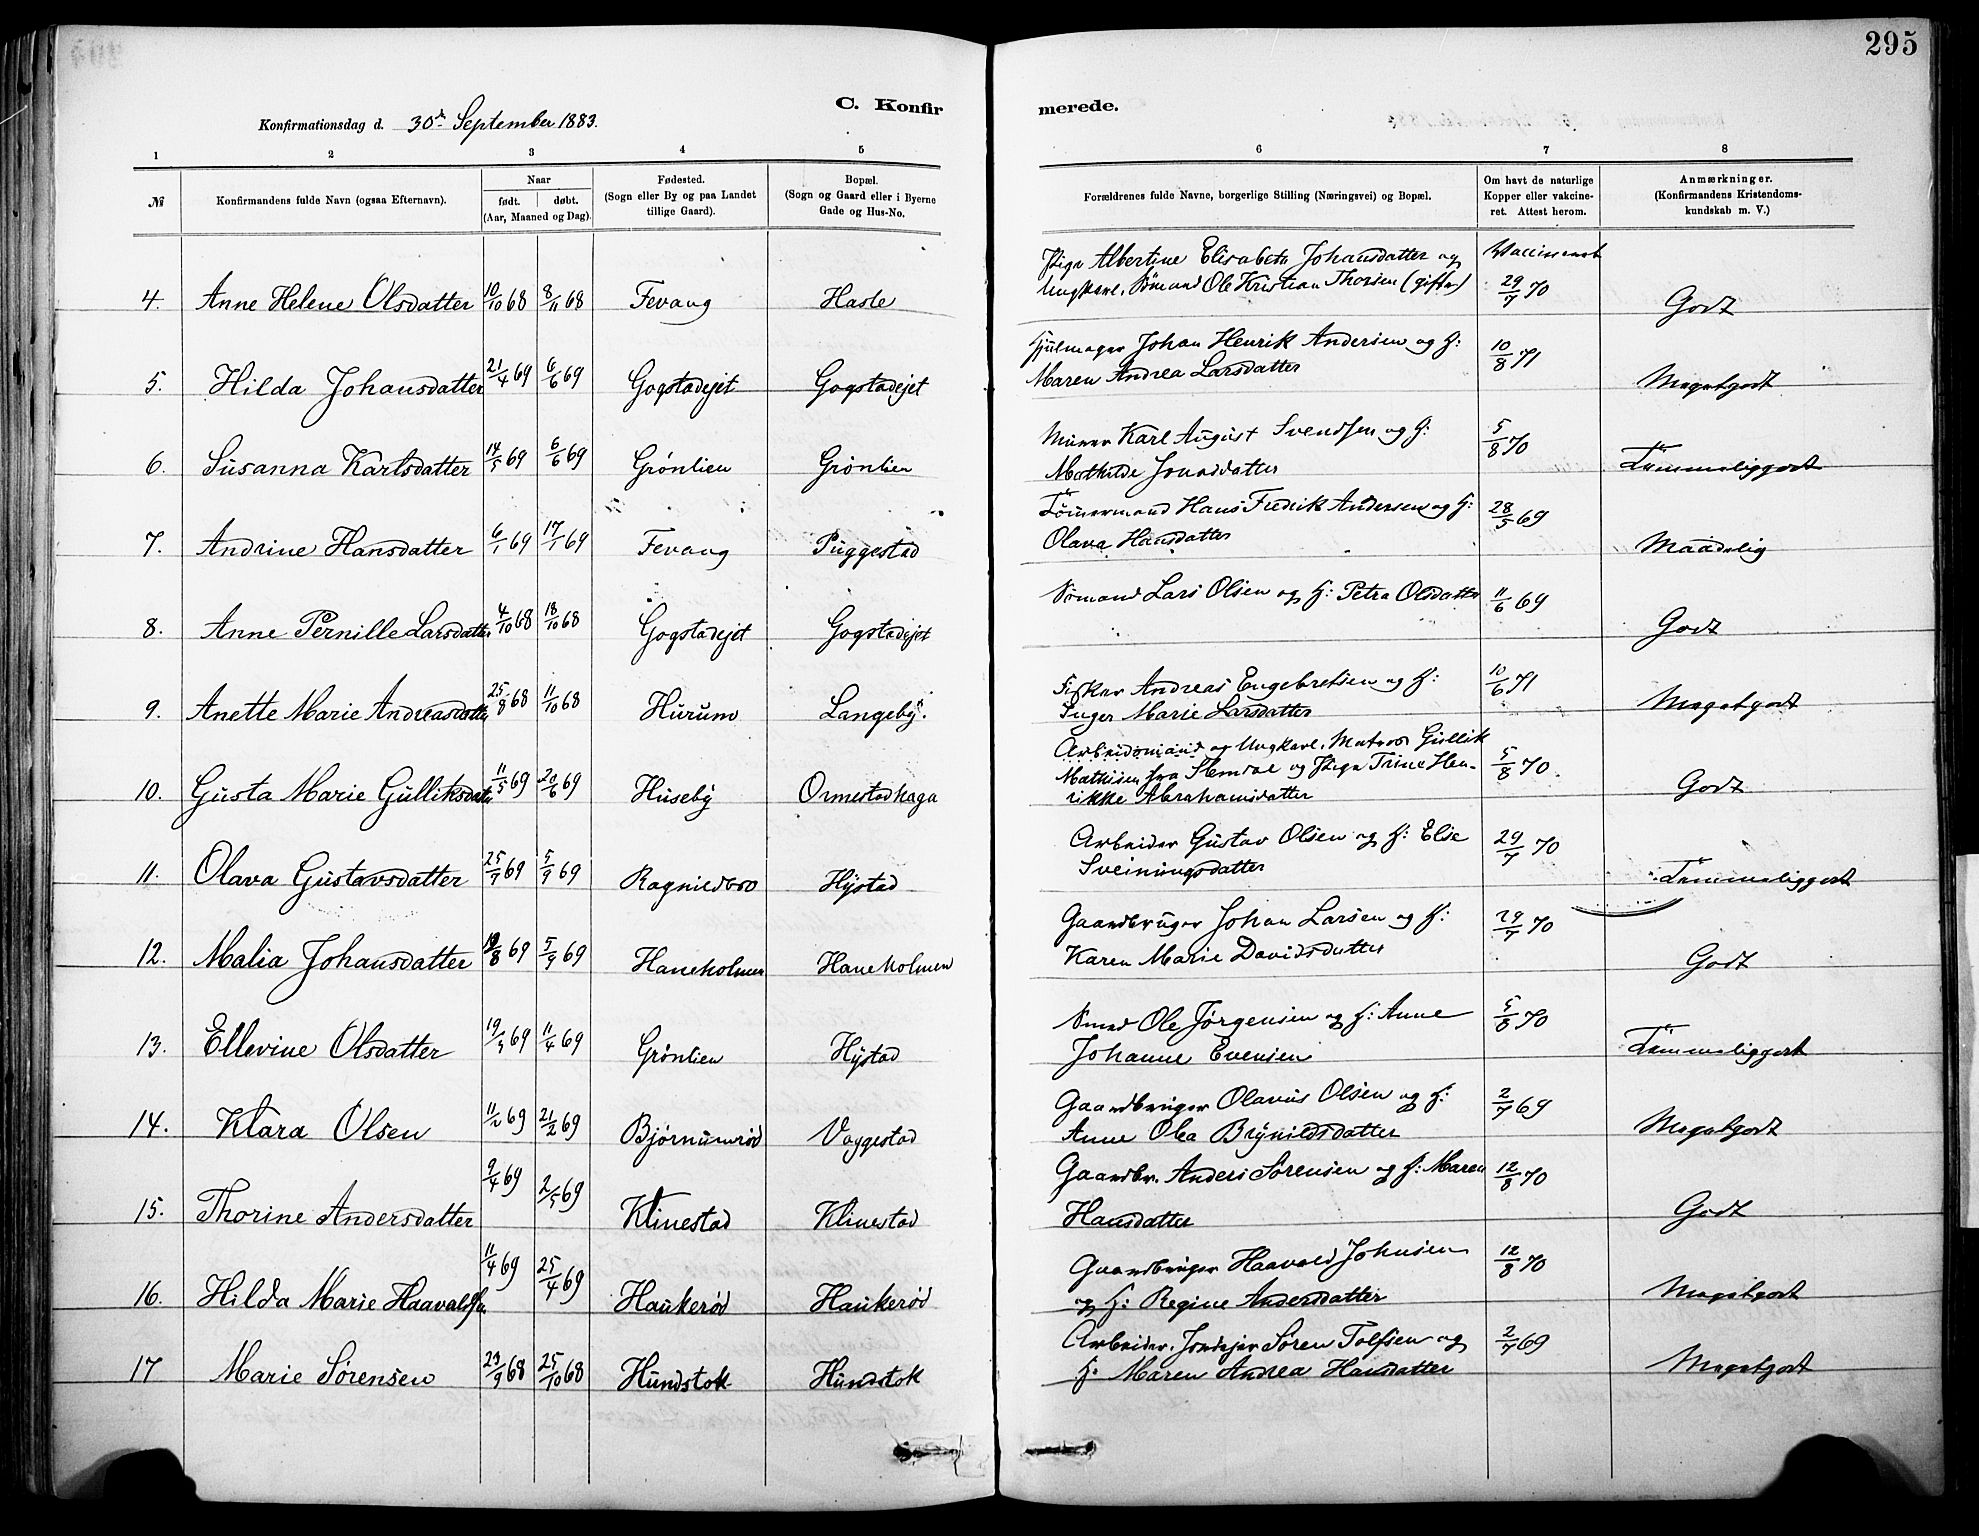 295
C. Konfir merede.
Konfirmationsdag d. 30te September 1883.
1 2 3 4 5 6 7 8
№ Konfirmandens fulde Navn (ogsaa Efternavn). Naar født. døbt. (Aar, Maaned og Dag). Fødested. (Sogn eller By og paa Landet tillige Gaard). Bopæl. (Sogn og Gaard eller i Byerne Gade og Hus-No. Forældrenes fulde Navne, borgerlige Stilling (Næringsvei) og Bopæl. Om havt de naturlige Kopper eller vakcineret. Attest herom. Anmærkninger. (Konfirmandens Kristendomskundskab m. V.)
Pige Albertine Elisabeth Johansdatter og Vaccineret
4. Anne Helene Olsdatter 10/10 68 8/11 68 Fevang Hasle Ungkarl, Sömand Ole Kristian Thorsen (gifte) 29/7 70 Godt
5. Hilda Johansdatter 21/4 69 6/6 69 Gogstadejet Gogstadejet Hjulmager Johan Henrik Andersen og H: 10/8 71 Megetgodt
Maren Andrea Larsdatter
6. Susanna Karlsdatter 14/5 69 6/6 69 Grönlien Grönlien Murer Karl August Svendsen og H: 5/8 70 Temmeliggodt
Mathilde Jonasdatter
7. Andrine Hansdatter 6/1 69 17/1 69 Fevang Puggestad Tömmermand Hans Fredrik Andersen og H: 28/5 69 Maadelig
Olava Hansdatter
8. Anne Pernille Larsdatter 4/10 68 18/10 68 Gogstadejet Gogstadejet Sömand Lars Olsen og H: Petra Olsdatter 11/6 69 Godt
9. Anette Marie Andreasdatter 25/8 68 11/10 68 Hurum Langeby. Fisker Andreas Engebretsen og H: 10/6 71 Megetgodt
Inger Marie Larsdatter
10. Gusta Marie Gulliksdatter 11/5 69 20/6 69 Huseby Ormestadhaga Arbeidsmand og Ungkarl, Matros Gullik 5/8 70 Godt
Mathisen fra Slemdal og Pige Trine Hen-
rikke Abrahamsdatter
11. Olava Gustavsdatter 25/7 69 5/9 69 Ragnildsro Hystad Arbeider Gustav Olsen og H: Else 29/7 70 Temmeliggodt
Sveinungsdatter
12. Malia Johansdatter /8 69 5/9 69 Haneholmen Haneholmen Gaardbruger Johan Larsen og H: 29/7 70 Godt
Karen Marie Davidsdatter
13. Ellevine Olsdatter 19/ 69 11/4 69 Grönlien Hystad Smed Ole Jörgensen og H: Anne 5/8 70 Temmeliggodt
Johanne Evensen
14. Klara Olsen 11/2 69 21/2 69 Björnumröd Vaggestad Gaardbruger Olavus Olsen og H: 2/7 69 Megetgodt
Anne Olea Brynildsdatter
15. Thorine Andersdatter 9/4 69 2/5 69 Klinestad Klinestad Gaardbr. Anders Sörensen og H: Maren 12/8 70 Godt
Hansdatter
16. Hilda Marie Haavaldsen 11/4 69 25/4 69 Haukeröd Haukeröd Gaardbruger Haavald Johnsen 12/8 70 Megetgodt
og H: Regine Andersdatter
17 Marie Sørensen 29/9 68 25/10 68 Hundstok Hundstok Arbeider, Jordejer Søren Tolfsen og 2/7 69 Megetgodt
H: Maren Andrea Hansdatter